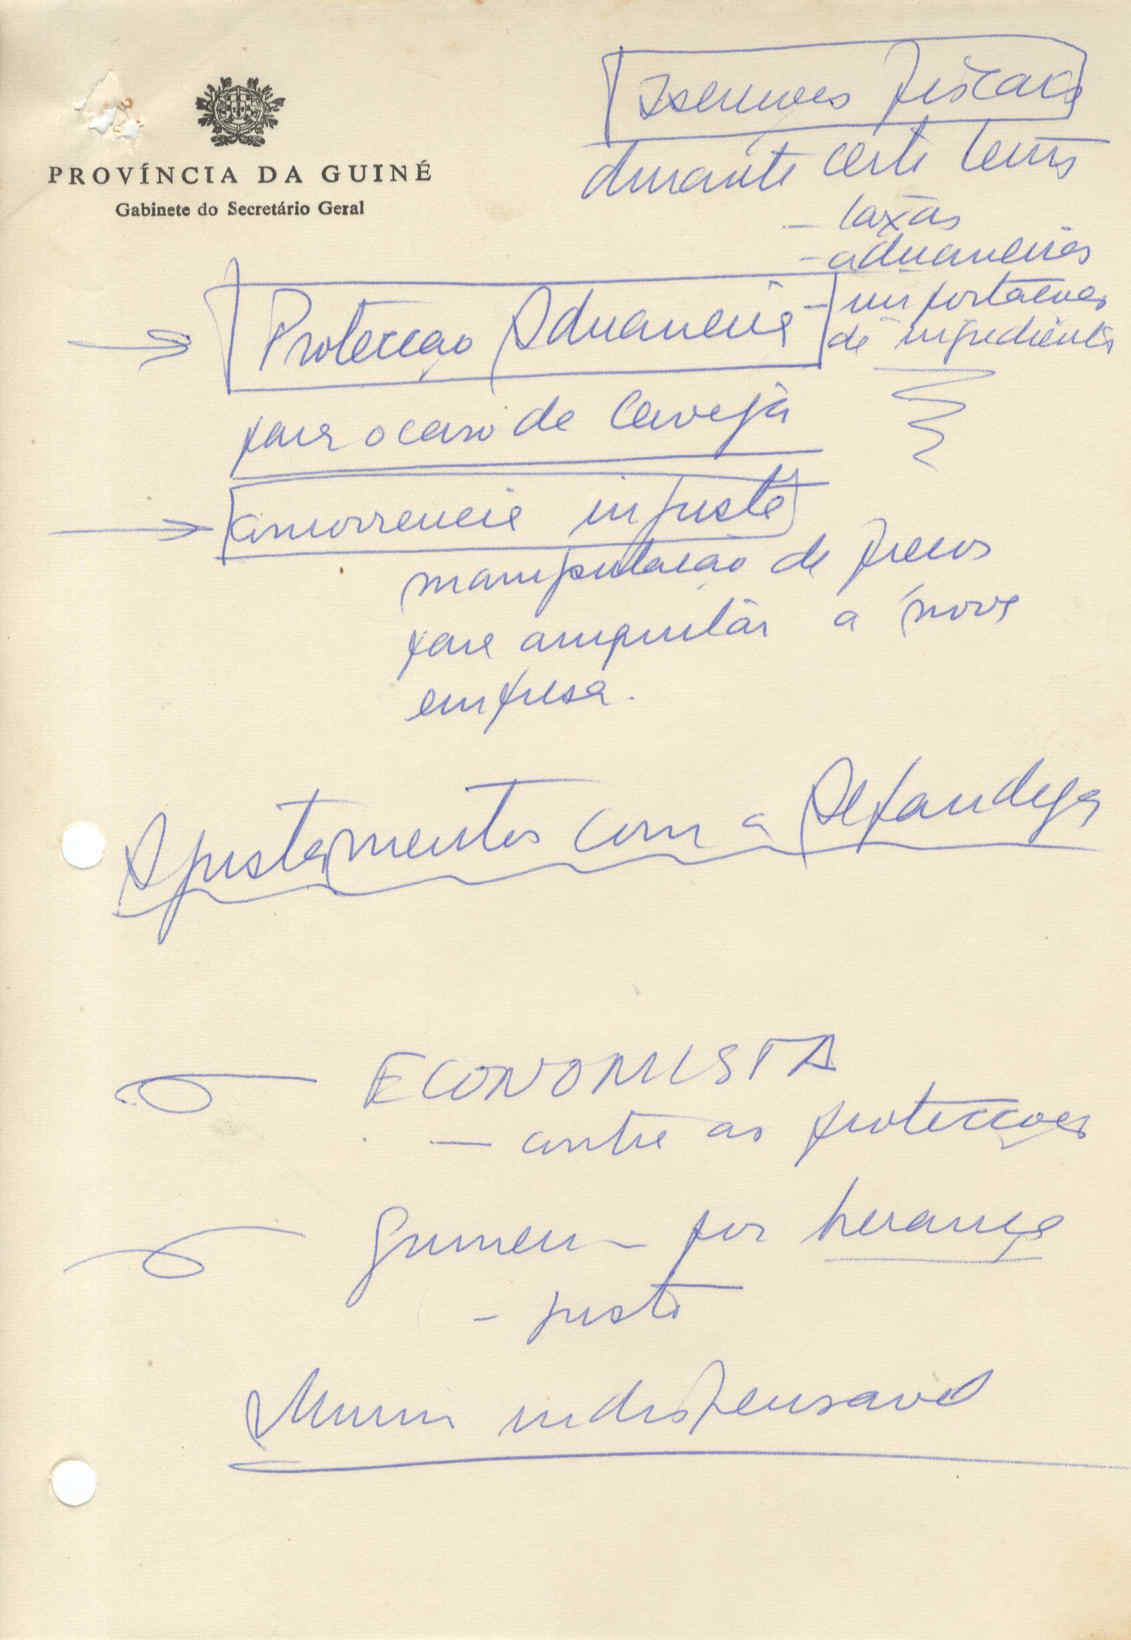 PROVÍNCIA DA GUINÉ
Gabinete do Secretário Geral
Isenções fiscais
durante certo tempo
- taxas
- aduaneiras
- importações
de ingredientes
→ Protecção Aduaneira
para o caso de Cerveja
→ concorrencia injusta
manipulação de preços
para aniquilar a nova
empresa.
Ajustamentos com a Alfandega
ECONOMISTA
- contra as protecções
por herança
- justo
indispensavel